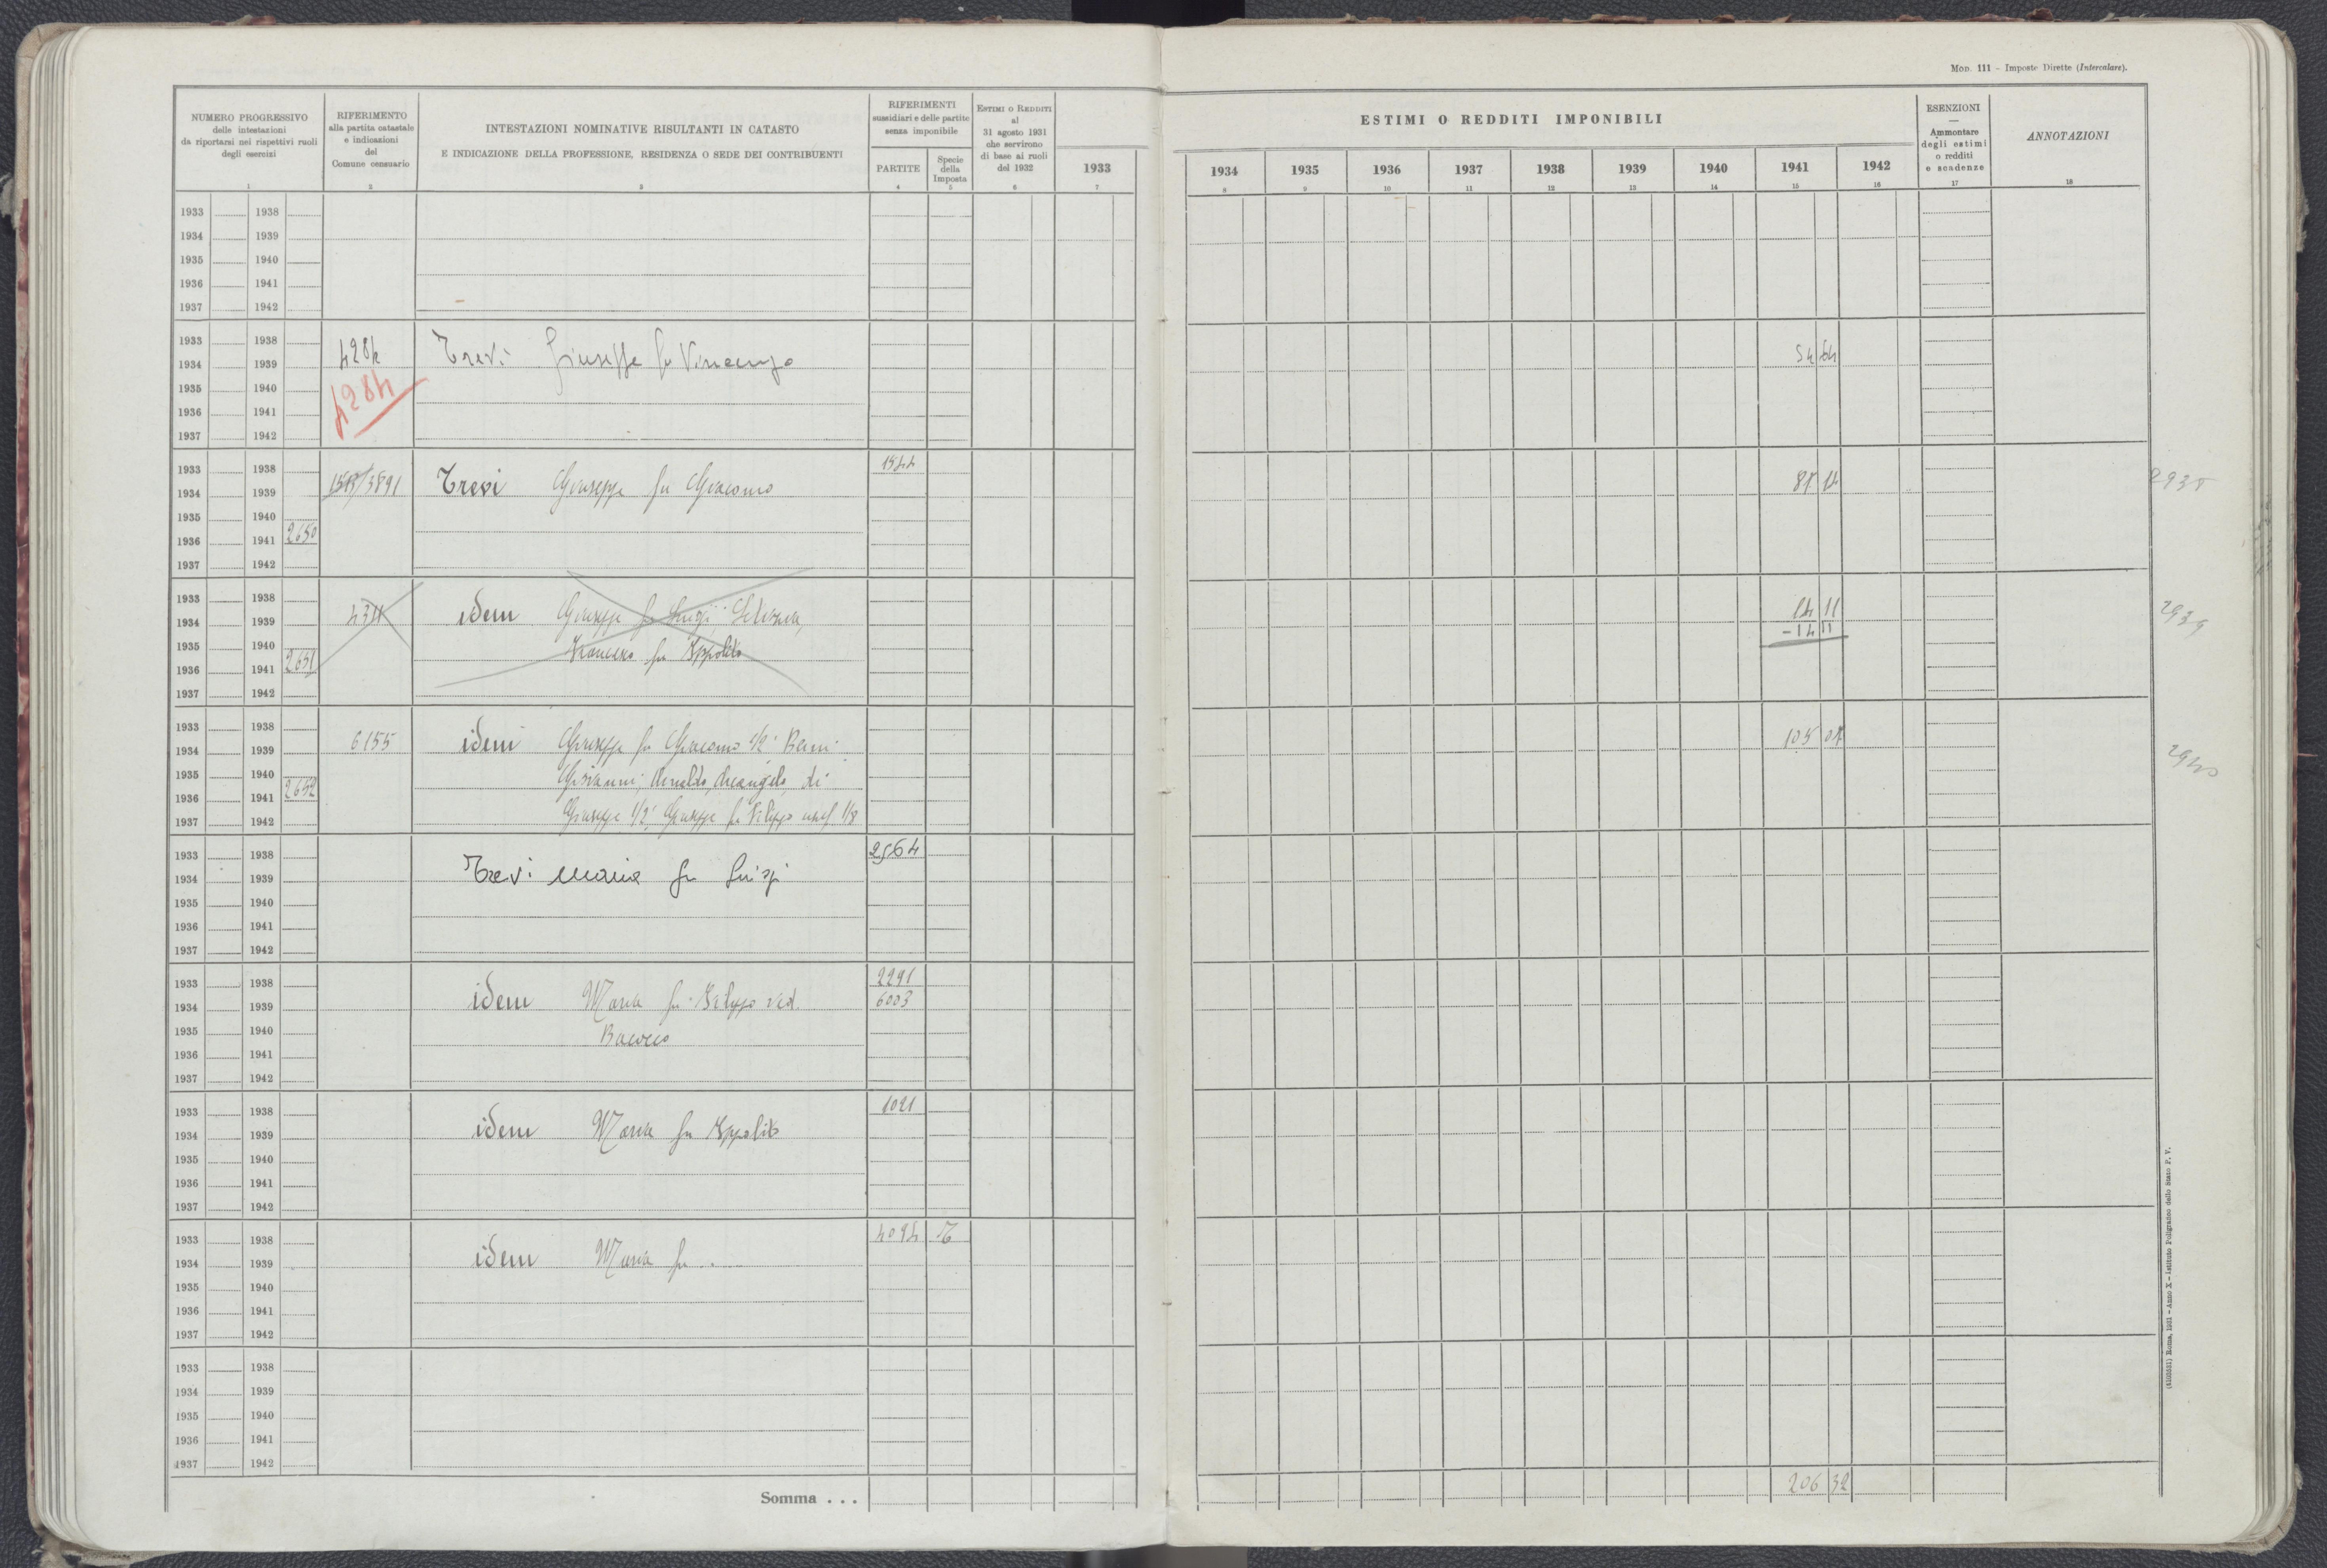 MOD. 111 – Imposte Dirette (Intercalare).
NUMERO PROGRESSIVO
delle intestazioni
da riportarsi nei rispettivi ruoli
degli esercizi
1
RIFERIMENTO
alla partita catastale
e indicazioni
del
Comune censuario
2
INTESTAZIONI NOMINATIVE RISULTANTI IN CATASTO
E INDICAZIONE DELLA PROFESSIONE, RESIDENZA O SEDE DEI CONTRIBUENTI
3
RIFERIMENTI
sussidiari e delle partite
senza imponibile
PARTITE
4
Specie
della
Imposta
5
ESTIMI O REDDITI
al
31 agosto 1931
che servirono
di base ai ruoli
del 1932
6
1933
7
ESTIMI O REDDITI IMPONIBILI
1934 1935 1936 1937 1938 1939 1940 1941 1942
8 9 10 11 12 13 14 15 16
ESENZIONI
—
Ammontare
degli estimi
o redditi
e scadenze
17
ANNOTAZIONI
18
1933 1938
1934 1939
1935 1940
1936 1941
1937 1942
1933 1938
4284 Trevi Giuseppe fu Vincenzo
1934 1939
1935 1940
4284
1936 1941
1937 1942
1933 1938 1544
3891 Trevi Giuseppe fu Giacomo
1934 1939
1935 1940
1936 1941 2650
1937 1942
1933 1938
idem Giuseppe fu Luigi
14 11
1934 1939
- 14 11
1935 1940
fu Ippolito
1936 1941 2651
1937 1942
2939
1933 1938
6155 idem Giuseppe fu Giacomo 1/2
1934 1939
Giovanni, Arnaldo, Arcangelo, di
1935 1940
1936 1941 2652
Giuseppe 1/2 Giuseppe fu Filippo usuf. 1/8
1937 1942
2940
1933 1938 2564
Trevi Maria fu Luigi
1934 1939
1935 1940
1936 1941
1937 1942
1933 1938 2291
idem Maria fu Filippo ved. 6003
1934 1939
1935 1940
1936 1941
1937 1942
1933 1938 1021
idem Maria fu Ippolito
1934 1939
1935 1940
1936 1941
1937 1942
1933 1938 4094
idem Maria fu . .
1934 1939
1935 1940
1936 1941
1937 1942
1933 1938
1934 1939
1935 1940
1936 1941
1937 1942
Somma . . . 206 32
Roma, 1931 – Anno X – Istituto Poligrafico dello Stato P. V.